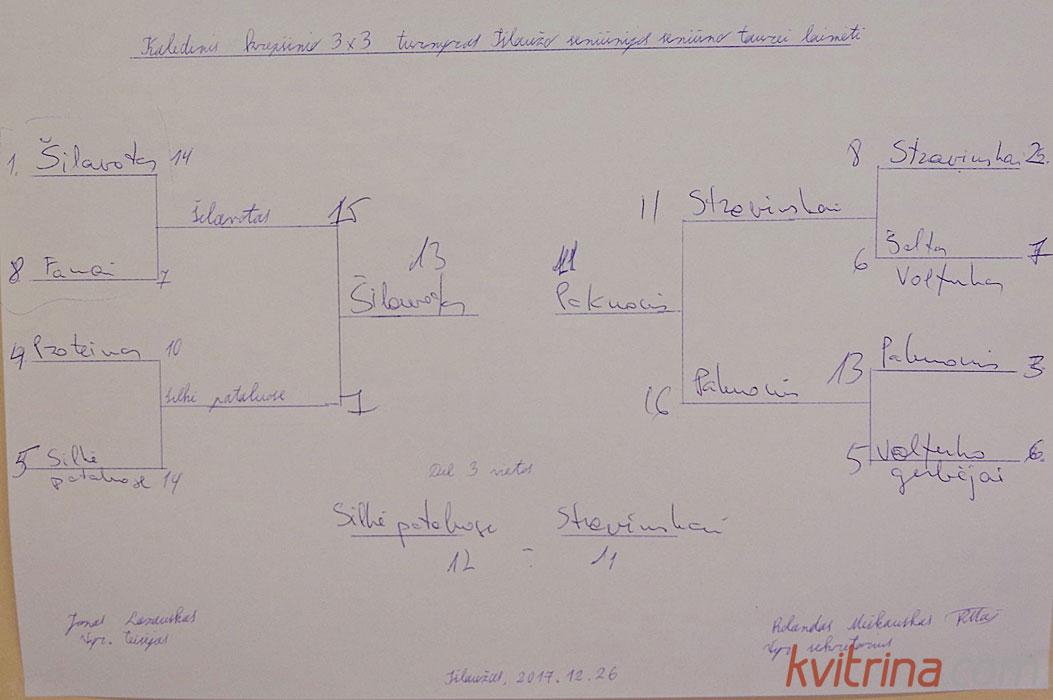 Kalėdinis krepšinio 3x3 turnyras Šilavoto seniūnijos seniūno taurei laimėti
1. Šilavotas 14
8 Fanai 7
Šilavotas 15
4. Proteinas 10
5 Silkė pataluose 14
Silkė pataluose 7
13
Šilavotas
11
Pakuonis
11 Stravinskai
16 Pakuonis
8 Stravinskai 2.
6 Balta Volfukas 7
13 Pakuonis 3.
5 Volfuko gerbėjai 6.
Dėl 3 vietos
Silkė pataluose Stravinskai
12 : 11
Jonas
Vyr. teisėjas
Rolandas
Vyr. sekretorius
Šilavotas, 2017.12.26
kvitrina.com